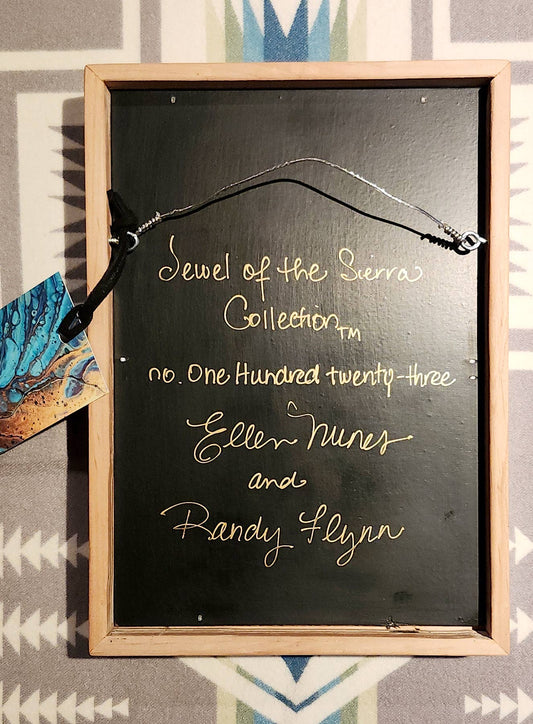 Jewel of the Sierra
Collection TM
no. One Hundred twenty-three
Ellen Nunes
and
Randy Flynn